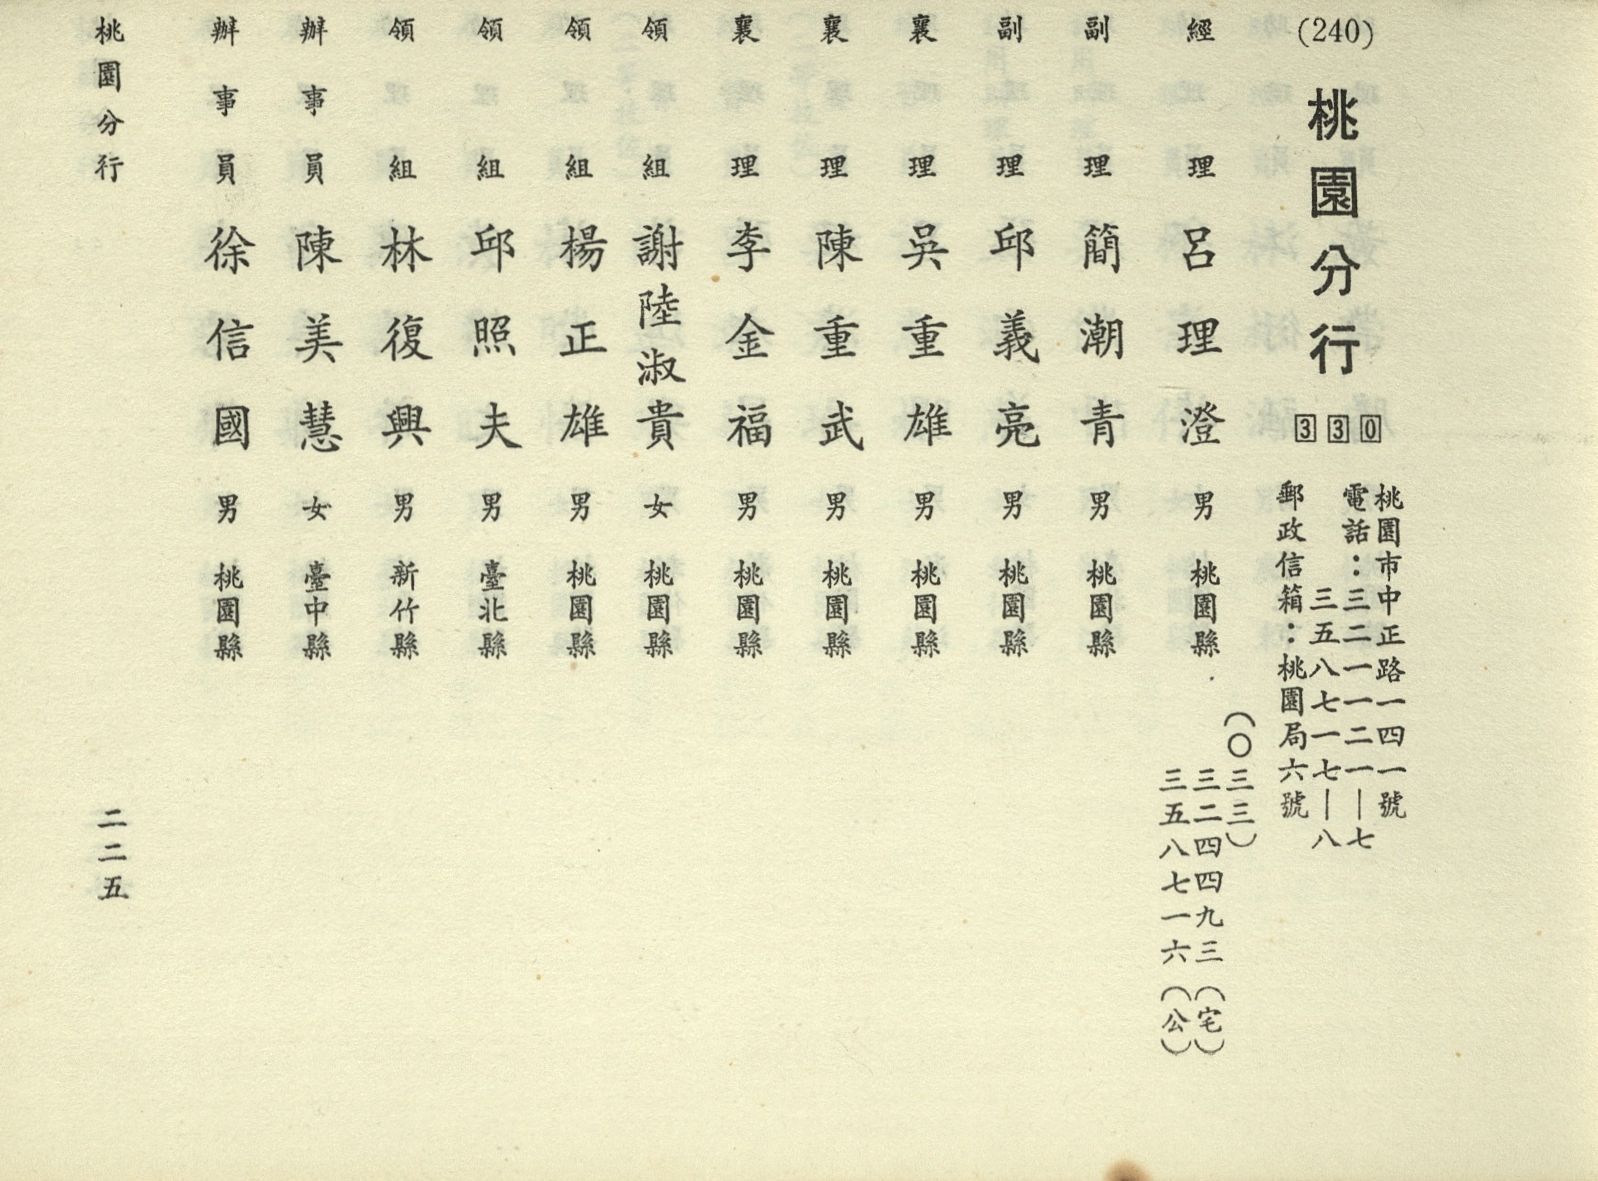 (240)
桃園分行
330
桃園市中正路一四一號
電話：三二一一二一一｜七
三五八七一七｜八
郵政信箱：桃園局六號
經理 呂理澄 男 桃園縣
(〇三三)
三二四四九三(宅)
三五八七一六(公)
副理 簡潮青 男 桃園縣
副理 邱義亮 男 桃園縣
襄理 吳重雄 男 桃園縣
襄理 陳重武 男 桃園縣
襄理 李金福 男 桃園縣
領組 謝陸淑貴 女 桃園縣
領組 楊正雄 男 桃園縣
領組 邱照夫 男 臺北縣
領組 林復興 男 新竹縣
辦事員 陳美慧 女 臺中縣
辦事員 徐信國 男 桃園縣
桃園分行
二二五